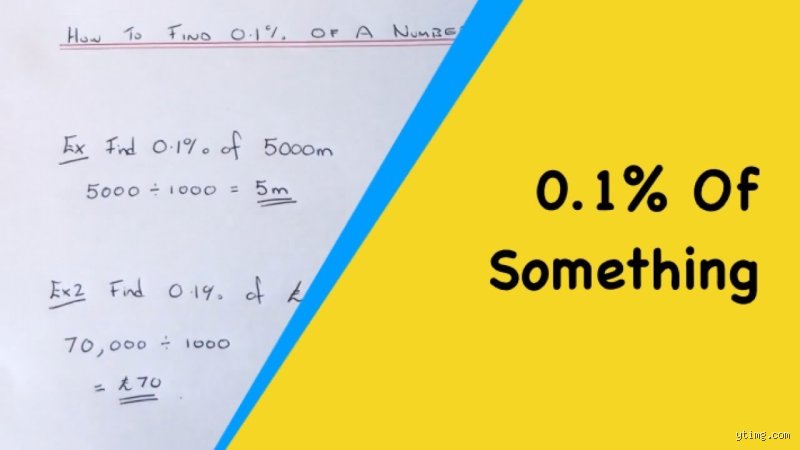 How To Find 0.1% Of A Number
Ex Find 0.1% of 5000m
5000 ÷ 1000 = 5m
Ex2 Find 0.1% of £
70,000 ÷ 1000
= £70
0.1% Of
Something
ytimg.com